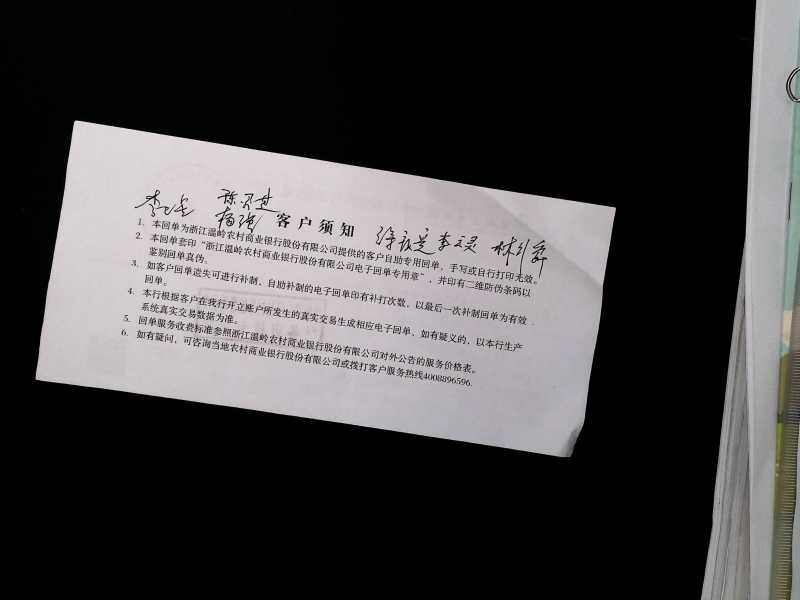 杨强
客户须知
1. 本回单为浙江温岭农村商业银行股份有限公司提供的客户自助专用回单，手写或自行打印无效。
2. 本回单套印“浙江温岭农村商业银行股份有限公司电子回单专用章”，并印有二维防伪条码以
鉴别回单真伪。
3. 如客户回单遗失可进行补制，自助补制的电子回单印有补打次数，以最后一次补制回单为有效
回单。
4. 本行根据客户在我行开立账户所发生的真实交易生成相应电子回单，如有疑义的，以本行生产
系统真实交易数据为准。
5. 回单服务收费标准参照浙江温岭农村商业银行股份有限公司对外公告的服务价格表。
6. 如有疑问，可咨询当地农村商业银行股份有限公司或拨打客户服务热线4008896596.